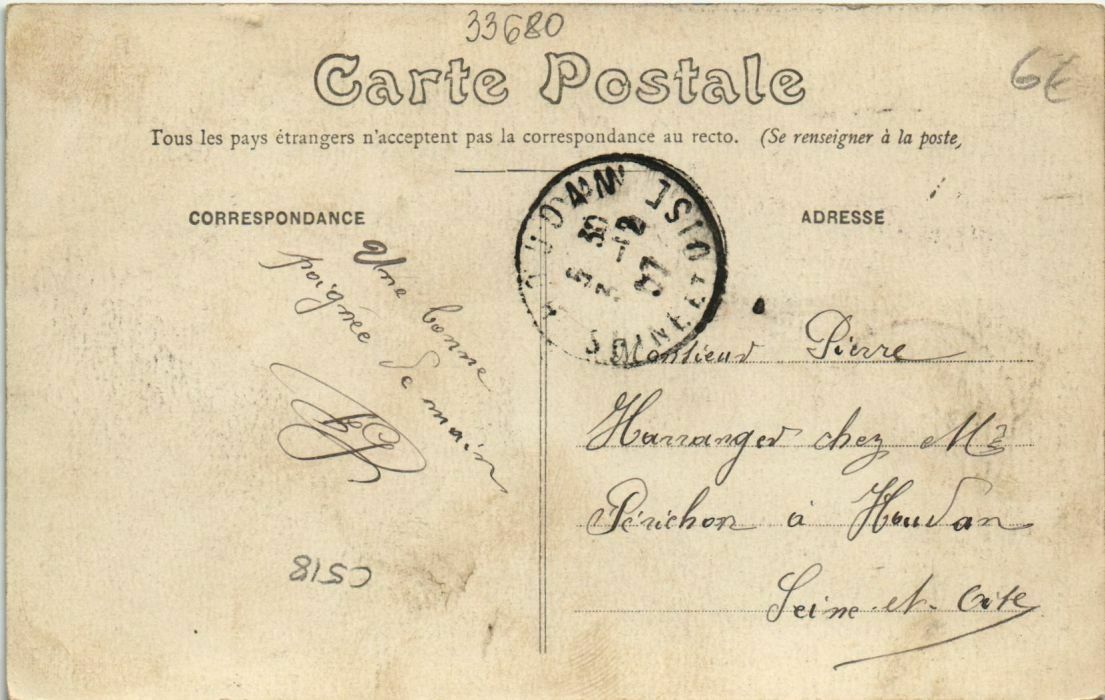 33680
6€
Carte Postale
Tous les pays étrangers n'acceptent pas la correspondance au recto. (Se renseigner à la poste,
CORRESPONDANCE
ADRESSE
Une bonne
poignée de main
HOUDAN
SEINE ET OISE
Monsieur Pierre
Harranger chez Mr
Périchon à Houdan
Seine-et-Oise
C518